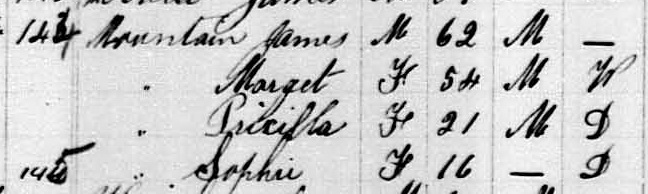 144 Mountain James M 62 M —
" Marget F 54 M W
" Pricilla F 21 M D
145 " Sophie F 16 — D